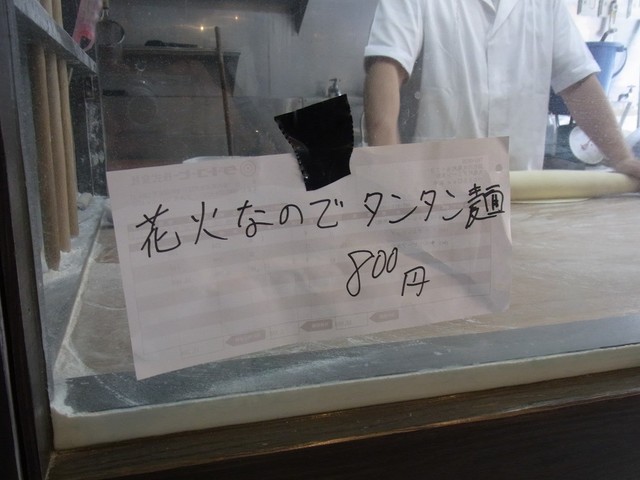 花火なのでタンタン麺
800円